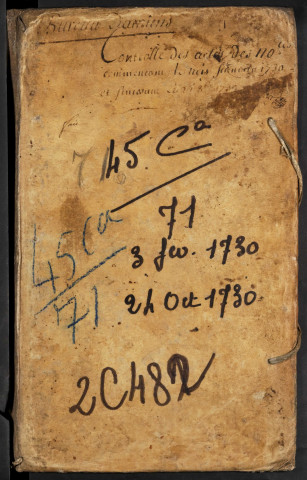 Bureau
Controlle des actes des no.res
commencant le trois 1730
et finissant le
45 Ca
71
3 fev. 1730
24 Oct 1730
45 Ca
71
2C482